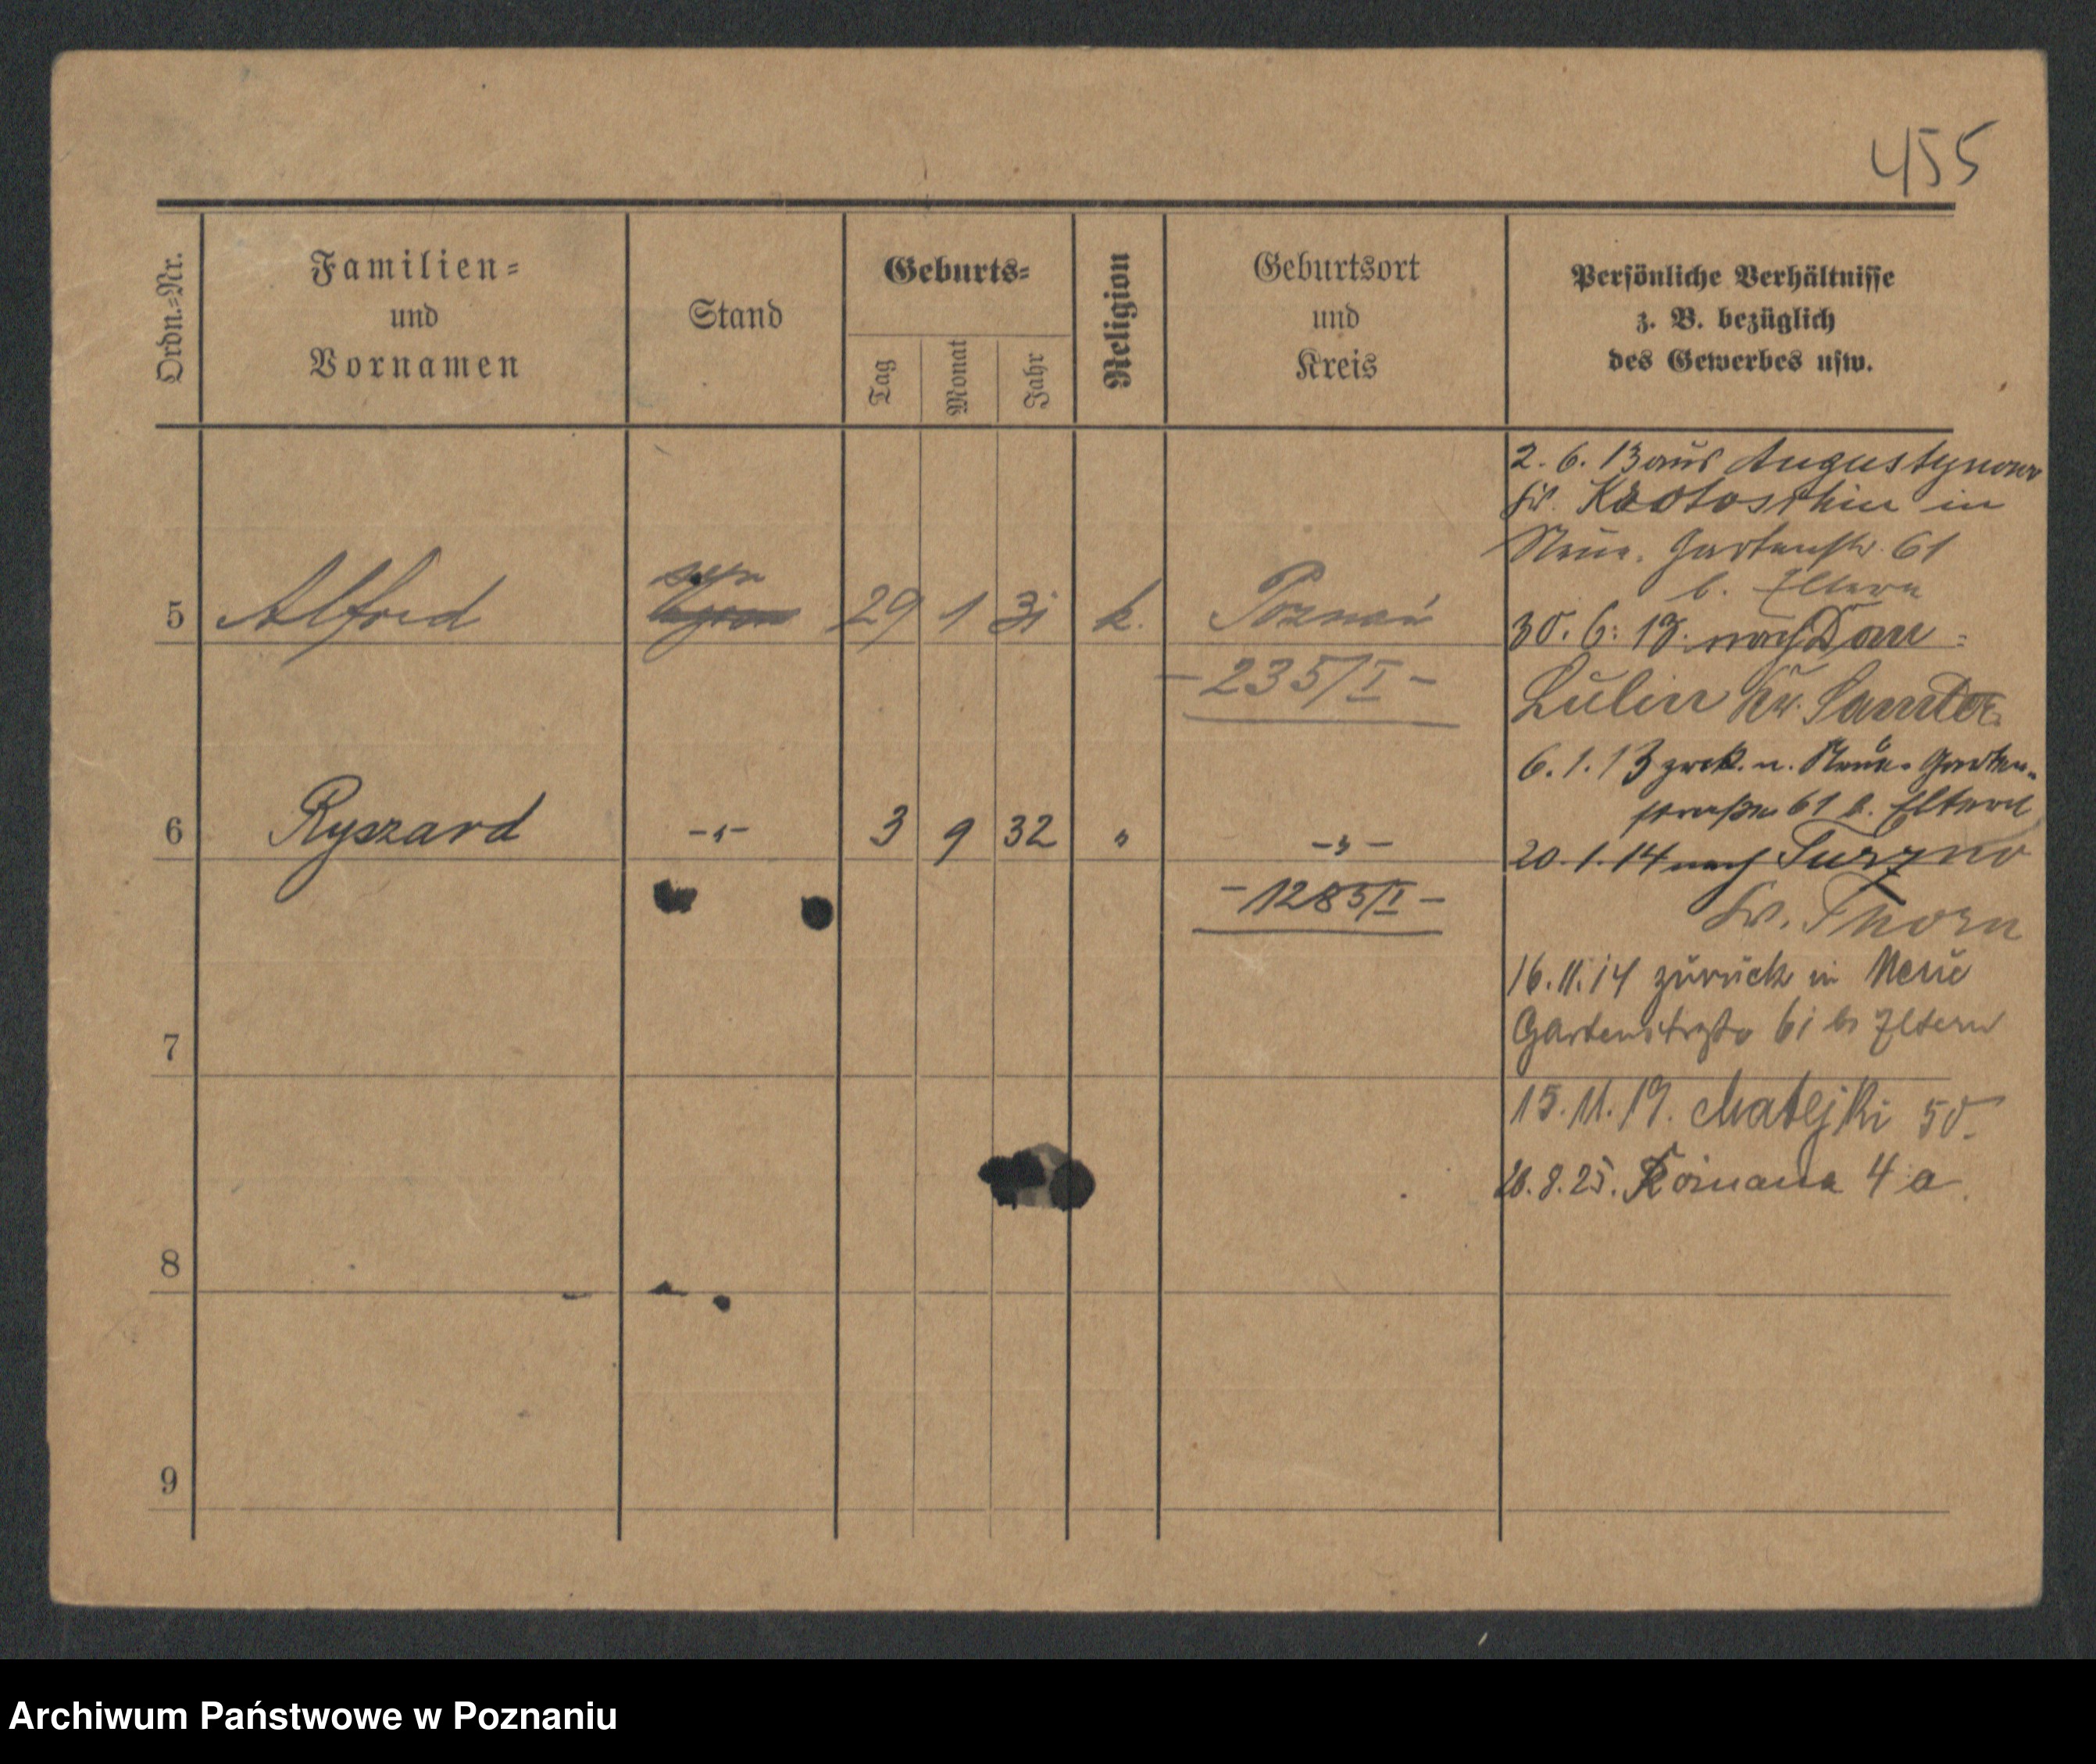 455
Ordn.-Nr.
Familien-
und
Vornamen
Stand
Geburts-
Tag
Monat
Jahr
Religion
Geburtsort
und
Kreis
Persönliche Verhältnisse
z. B. bezüglich
des Gewerbes usw.
2. 6. 13 aus Augustynowo
Kr. Krotoschin in
Neue. Gartenstr. 61
b. Eltern
5 Alfred syn 29 1 31 k. Poznań
- 235/I -
30. 6. 13. nach Dom-
Lulin Kr. Samter
6. 1. 13 zurck. n. Neue- Garten-
straße 61 b. Eltern
6 Ryszard -"- 3 9 32 " -"-
- 1285/I -
20. 1. 14 nach Turzno
Kr. Thorn
16. 11. 14 zurück in Neue
Gartenstraße 61 b Eltern
7
15. 11. 19. Matejki 50.
8. 25. 4 a
8
9
Archiwum Państwowe w Poznaniu